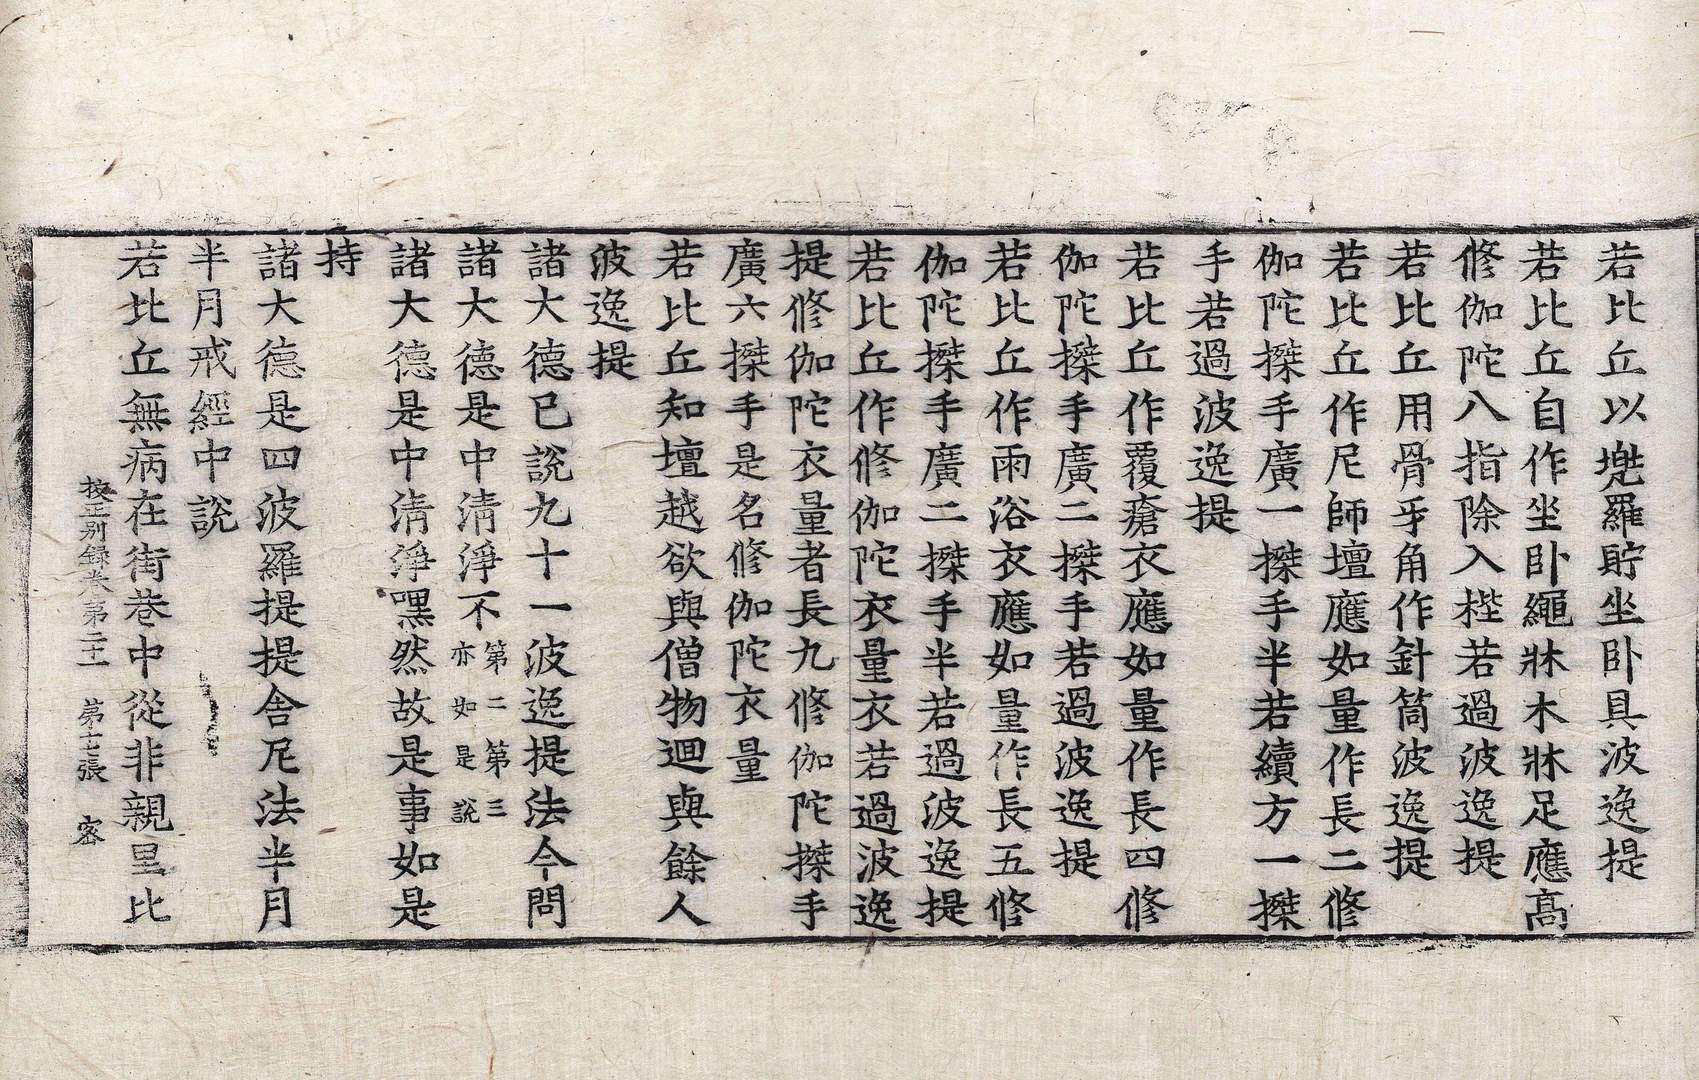 若比丘以兠羅貯坐卧具波逸提
若比丘自作坐卧繩牀木牀足應髙
修伽陀八指除入梐若過波逸提
若比丘用骨牙角作針筒波逸提
若比丘作尼師壇應如量作長二修
伽陀搩手廣一搩手半若續方一搩
手若過波逸提
若比丘作覆瘡衣應如量作長四修
伽陀搩手廣二搩手若過波逸提
若比丘作雨浴衣應如量作長五修
伽陀搩手廣二搩手半若過波逸提
若比丘作修伽陀衣量衣若過波逸
提修伽陀衣量者長九修伽陀搩手
廣六搩手是名修伽陀衣量
若比丘知壇越欲與僧物迴與餘人
波逸提
諸大德已說九十一波逸提法今問
諸大德是中清淨不第二第三亦如是說
諸大德是中清淨嘿然故是事如是
持
諸大德是四波羅提提舍尼法半月
半月戒經中說
若比丘無病在街巷中從非親里比
校正別録卷第二十一 第十七張 密